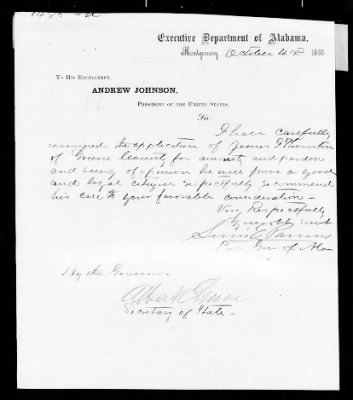 Executive Department of Alabama,
Montgomery October 4th 1865.
To His Excellency,
ANDREW JOHNSON,
President of the United States.
Sir
I have carefully
examined the application of James Thornton
of Greene County for amnesty and pardon
and being of opinion he will prove a good
and loyal citizen respectfully recommend
his case to your favorable consideration -
Very Respectfully
Lewis E Parsons
Gov of Ala
By the Governor
Albert Elmore
Secretary of State -